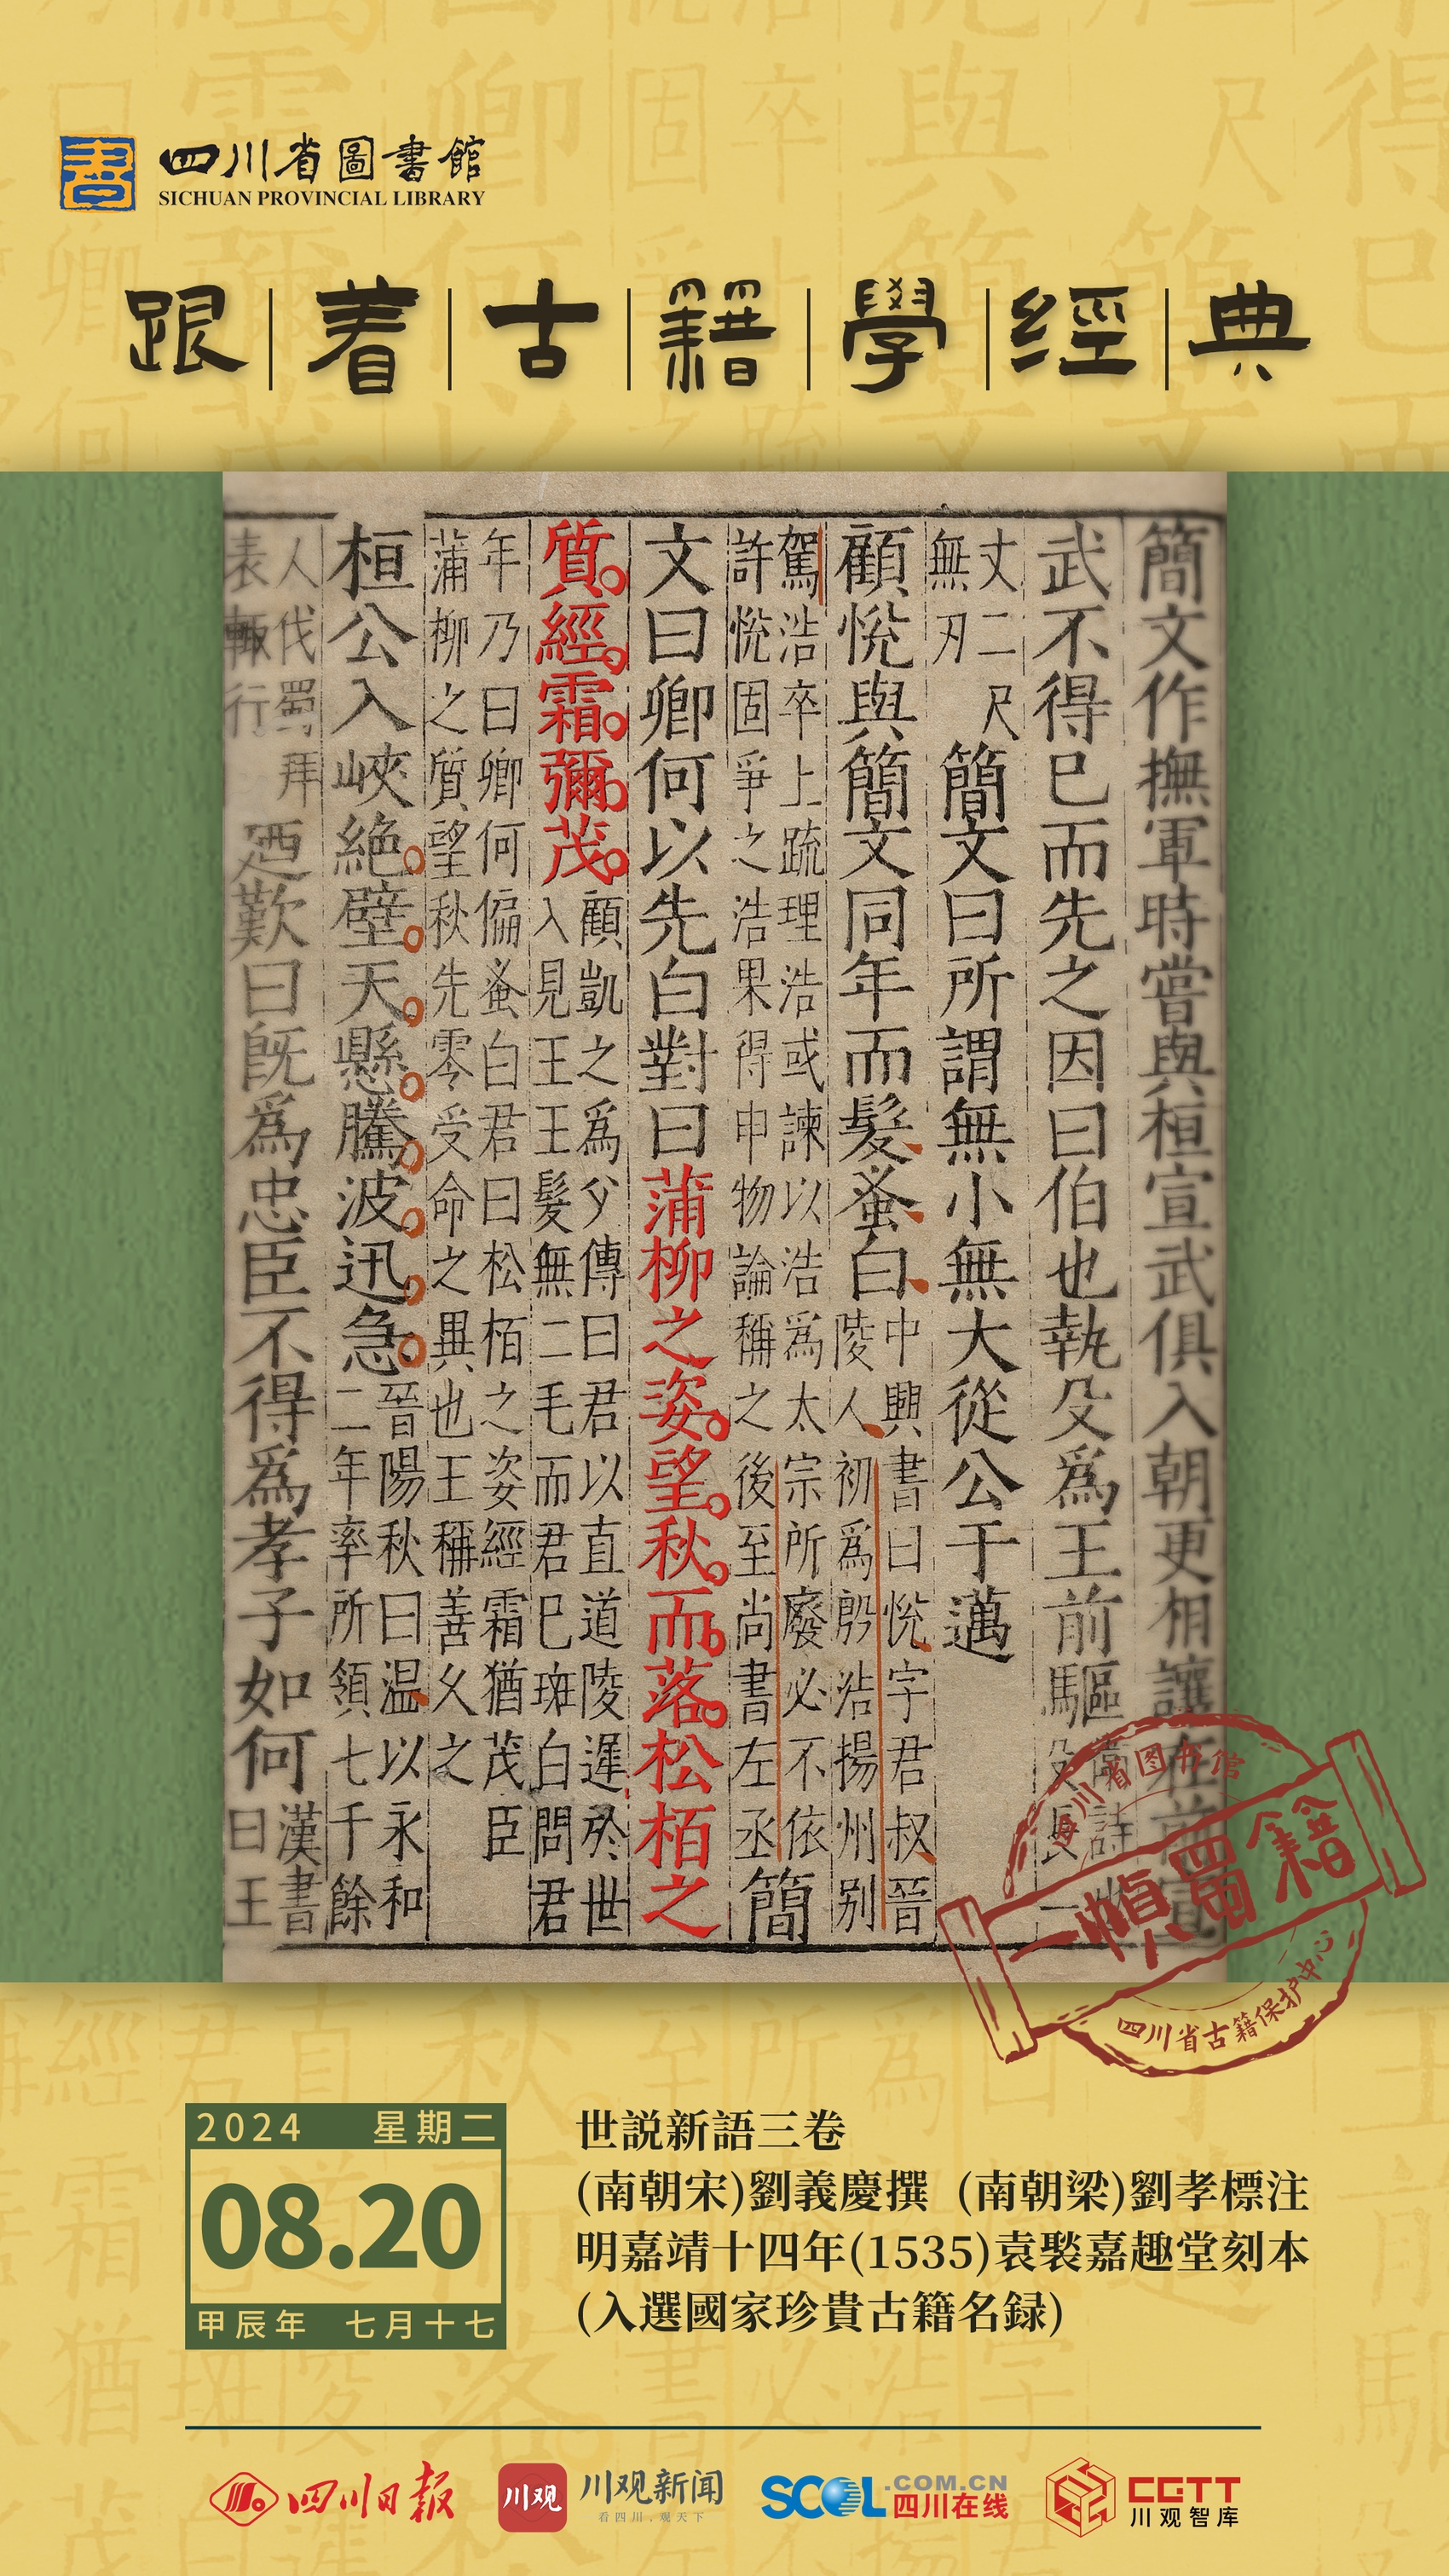 四川省圖書館
SICHUAN PROVINCIAL LIBRARY
跟着古籍學經典
簡文作撫軍時嘗與桓宣武俱入朝更相讓在前宣
武不得已而先之因曰伯也執殳爲王前驅
衛詩也
殳長一
丈二尺
無刃
簡文曰所謂無小無大從公于邁
顧悅與簡文同年而髮蚤白
中興書曰悅字君叔晉
陵人初爲殷浩揚州别
駕浩卒上疏理浩或諫以浩爲太宗所廢必不依
許悅固爭之浩果得申物論稱之後至尚書左丞
簡
文曰卿何以先白對曰蒲柳之姿望秋而落松栢之
質經霜彌茂
顧凱之爲父傳曰君以直道陵遲於世
入見王王髮無二毛而君已斑白問君
年乃曰卿何偏蚤白君曰松栢之姿經霜猶茂臣
蒲柳之質望秋先零受命之異也王稱善久之
桓公入峽絶壁天懸騰波迅急
晉陽秋曰温以永和
二年率所領七千餘
人伐蜀拜
表輒行
廼歎曰既爲忠臣不得爲孝子如何
漢書
曰王
四川省图书馆
一幀蜀籍
四川省古籍保护中心
2024 星期二
08.20
甲辰年 七月十七
世説新語三卷
(南朝宋)劉義慶撰 (南朝梁)劉孝標注
明嘉靖十四年(1535)袁褧嘉趣堂刻本
(入選國家珍貴古籍名録)
四川日报
川观
川观新闻
看四川，观天下
SCOL.COM.CN
四川在线
CGTT
川观智库